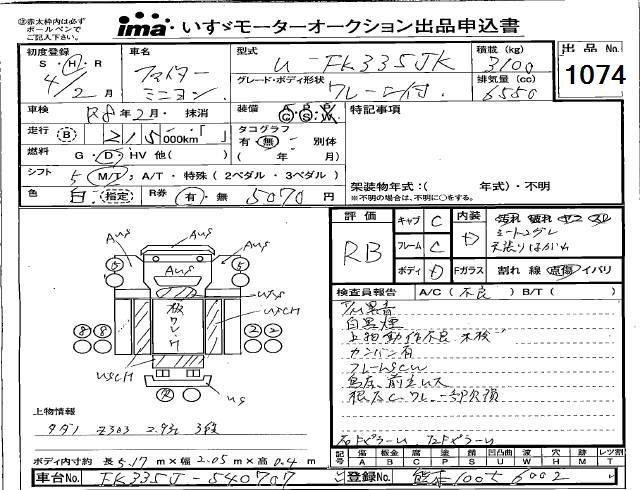 ㊟赤太枠内は必ず
ボールペンで
ご記入下さい。
ima いすゞモーターオークション出品申込書
初度登録 S・H・R 4/2月
車名 ファイター ミニヨン
型式 U-FK335JK
積載(kg) 3100
出品No. 1074
グレード・ボディ形状 クレーン付
排気量(cc) 6550
車検 R8年2月・抹消
装備 A P P C S W
特記事項
走行 B 215,000km
タコグラフ 有・無 別体 ( 年 月)
燃料 G・D・HV 他( )
シフト 5 M/T・A/T・特殊(2ペダル・3ペダル)
架装物年式:( 年式)・不明
※不明の場合は、不明に○をする。
色 白 指定 R券 有・無 5070円
評価 RB
キャブ C
フレーム C
ボディ D
内装 D 汚れ 破れ ヤニ スレ
シートコゲ
天張りはがれ
Fガラス 割れ 線 点傷 イバリ
検査員報告 A/C(不良) B/T( )
白黒煙
上物動作不良 未検
カンバン有
フレームSCW
AUS
AUS
AUS
5
5
USCH
板
8 8
2 2
USCH
US
上物情報
タダノ Z303 2.93t 3段
ボディ内寸約 長5.17m×幅2.05m×高0.4m
記号 傷 A 板金 B 腐 C 塗 P 錆 S 凹凸曲 U 波 W 穴 H 跡 M レツ割 T
車台No. FK335J-540707
登録No. 熊本100せ6002